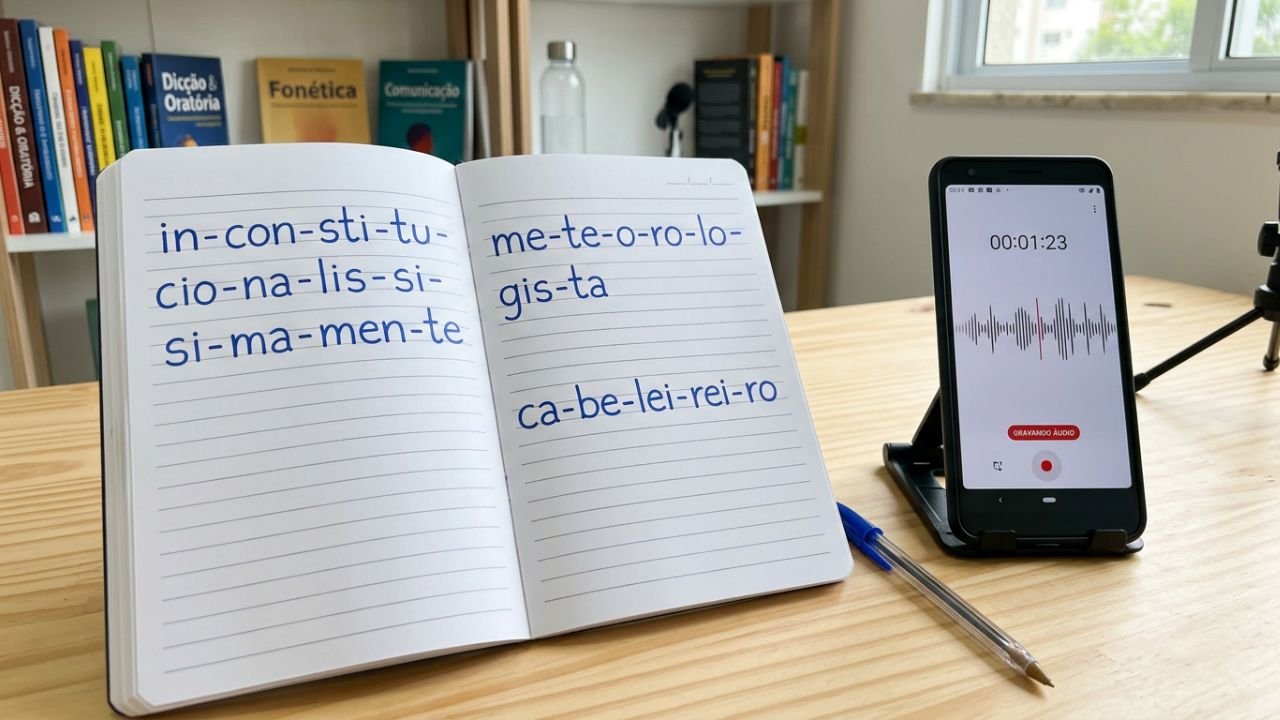 DICÇÃO & ORATÓRIA
Dicção &
Oratória
Fonética
Comunicação
in-con-sti-tu-
cio-na-lis-si-
si-ma-men-te
me-te-o-ro-lo-
gis-ta
ca-be-lei-rei-ro
00:01:23
GRAVANDO ÁUDIO